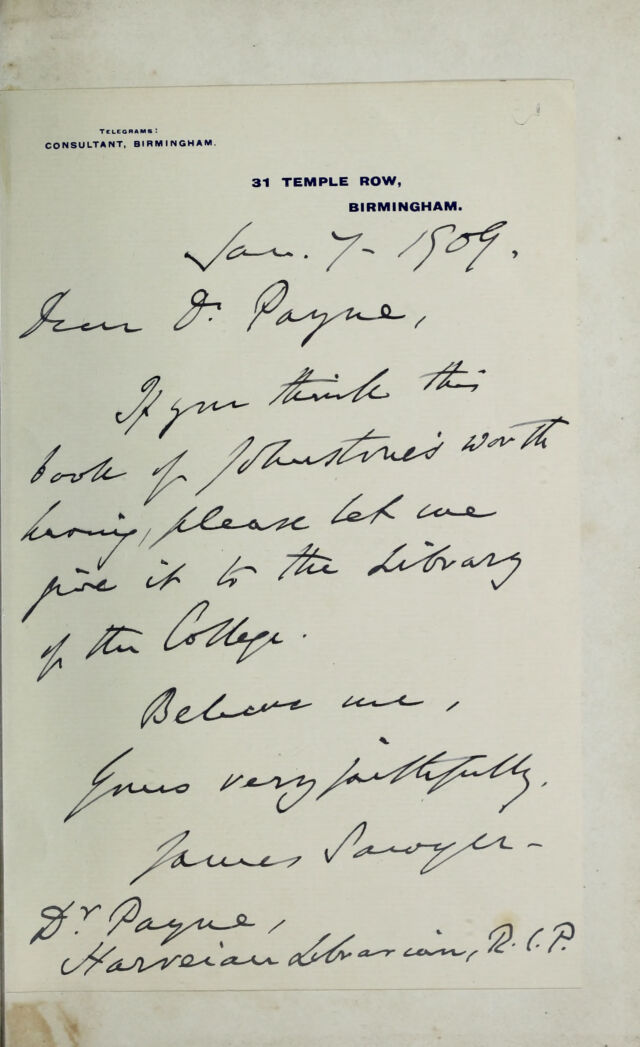 TELEGRAMS:
CONSULTANT, BIRMINGHAM.
31 TEMPLE ROW,
BIRMINGHAM.
Jan. 7 - 1909.
Dear Dr. Payne,
If you think this
book of Johnstone's worth
having, please let me
give it to the Library
of the College.
Believe me,
Yours very faithfully.
James Sawyer -
Dr Payne,
Harveian Librarian, R.C.P.